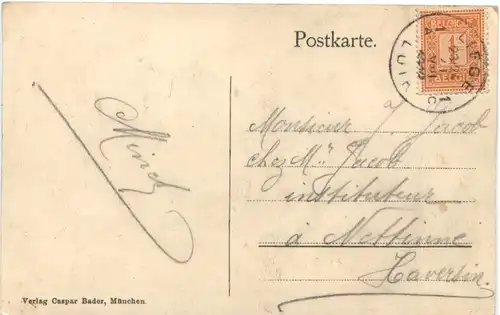 Postkarte.
BELGIQUE
1
BELGIË
LIEGE
LUIK
Monsieur J. Jacob
chez Mr. Jacob
instituteur
à Nettinne
Haversin.
Verlag Caspar Bader, München.